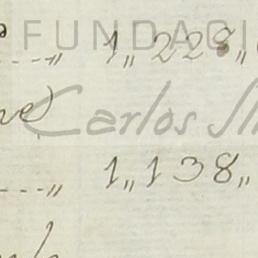 FUNDACI
....,, 1,,228,,
ve)
Carlos Sli
1,,138,,